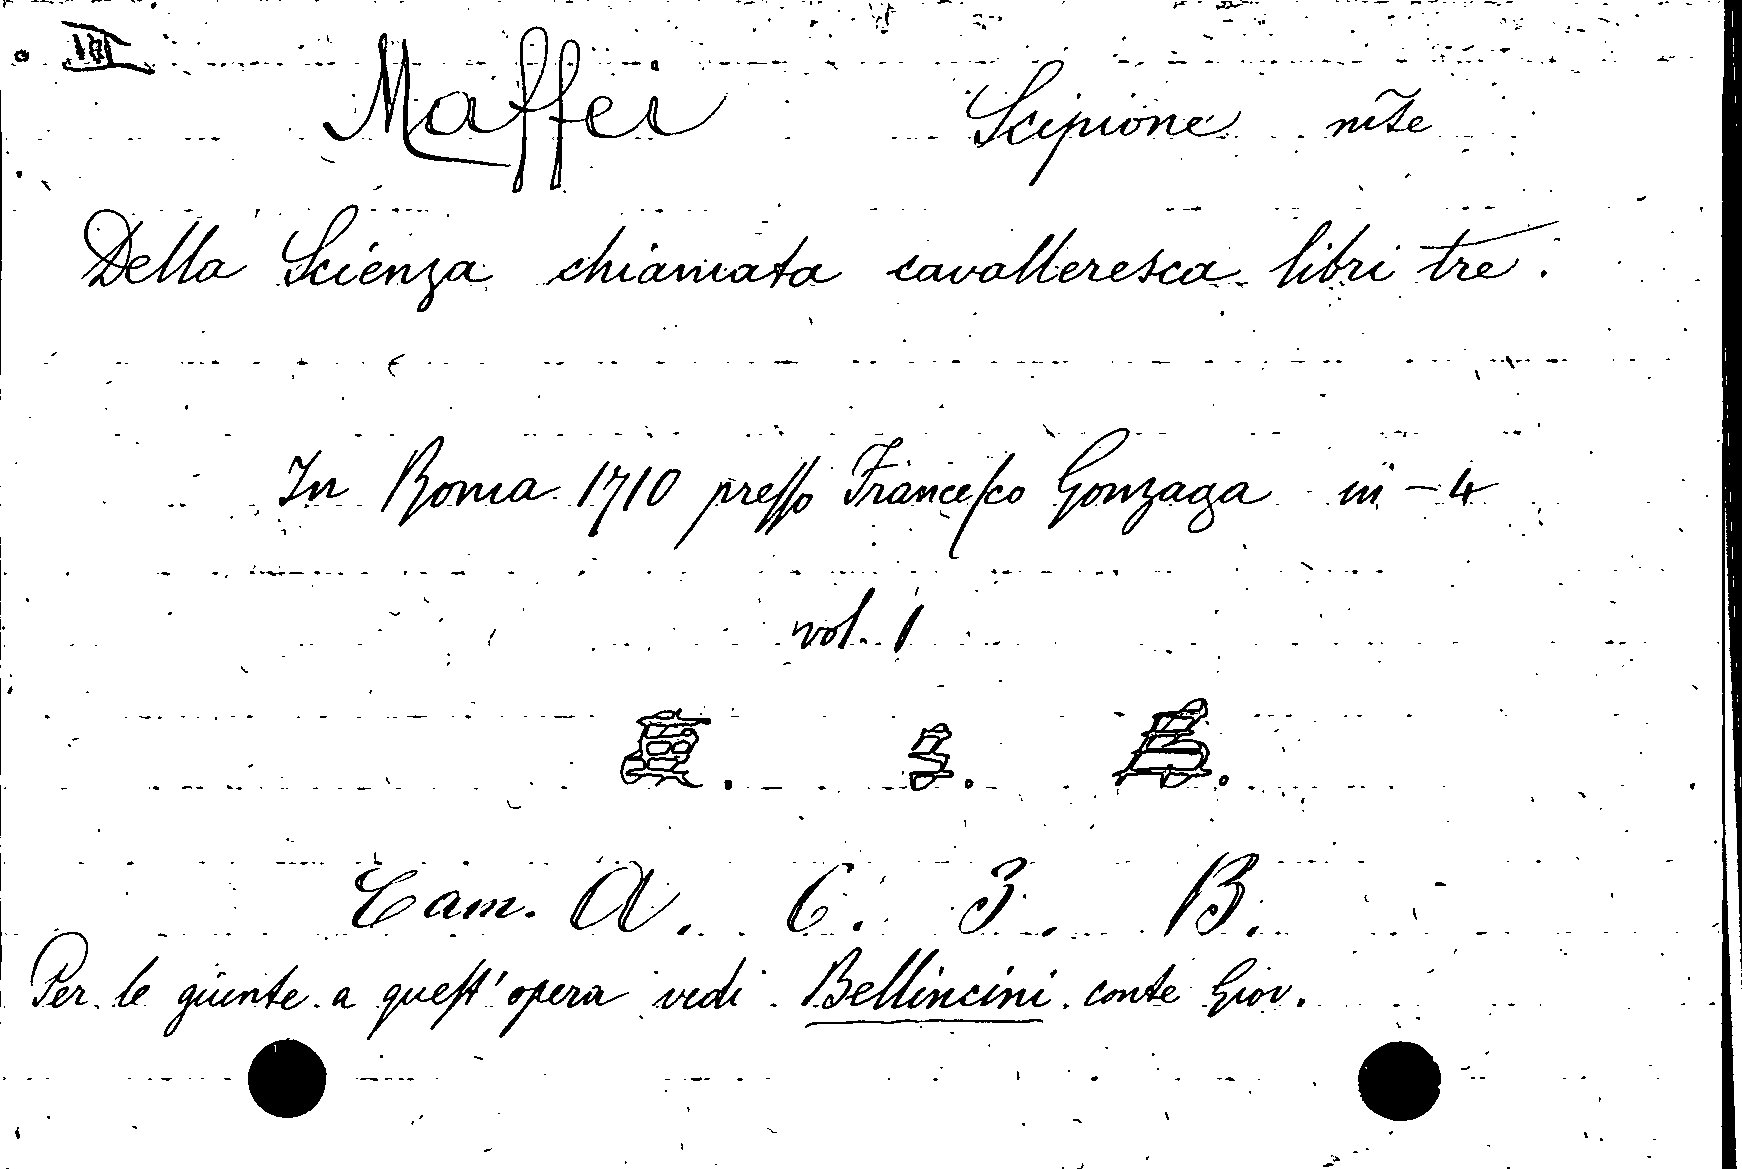 Maffei Scipione m̃se
Della Scienza chiamata cavalleresca libri tre.
In Roma 1710 presso Francesco Gonzaga in-4
vol. 1
Cam. A. 6. 3. B.
Per le giunte a quest'opera vedi Bellincini conte Giov.